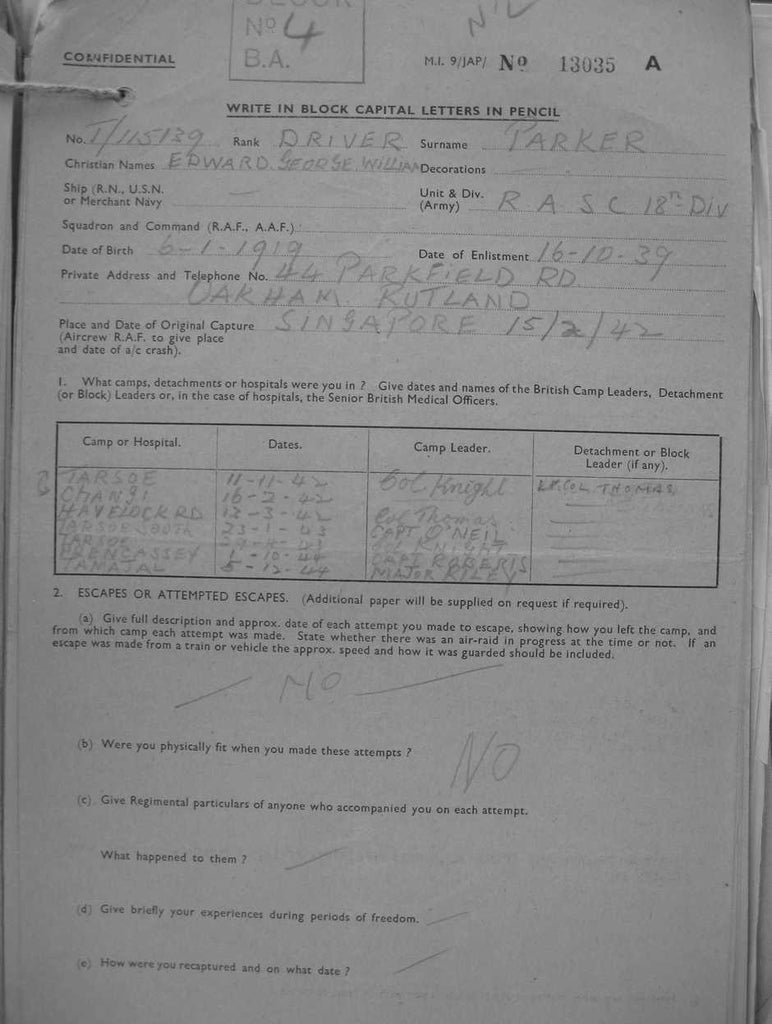 No 4
B.A.
NIL
CONFIDENTIAL
M.I. 9/JAP/ No 13035 A
WRITE IN BLOCK CAPITAL LETTERS IN PENCIL
No. T/115139 Rank DRIVER Surname PARKER
Christian Names EDWARD GEORGE WILLIAM Decorations
Ship (R.N., U.S.N.
or Merchant Navy
Unit & Div.
(Army) R A S C 18th Div
Squadron and Command (R.A.F., A.A.F.)
Date of Birth 6-1-1919 Date of Enlistment 16-10-39
Private Address and Telephone No. 44 PARKFIELD RD
OAKHAM. RUTLAND
Place and Date of Original Capture SINGAPORE 15/2/42
(Aircrew R.A.F. to give place
and date of a/c crash).
1. What camps, detachments or hospitals were you in ? Give dates and names of the British Camp Leaders, Detachment
(or Block) Leaders or, in the case of hospitals, the Senior British Medical Officers.
Camp or Hospital. Dates. Camp Leader. Detachment or Block
Leader (if any).
TARSOE 11-11-42 Col Knight Lt. COL THOMAS
CHANGI 16-2-42
HAVELOCK RD 12-3-42 Col Thomas
TARSOE SOUTH 23-1-43 CAPT O'NEIL
TARSOE KNIGHT
1-10-44 CAPT ROBERTS
TAMAJAL 5-12-44 MAJOR
2. ESCAPES OR ATTEMPTED ESCAPES. (Additional paper will be supplied on request if required).
(a) Give full description and approx. date of each attempt you made to escape, showing how you left the camp, and
from which camp each attempt was made. State whether there was an air-raid in progress at the time or not. If an
escape was made from a train or vehicle the approx. speed and how it was guarded should be included.
NO
(b) Were you physically fit when you made these attempts ? NO
(c) Give Regimental particulars of anyone who accompanied you on each attempt.
What happened to them ?
(d) Give briefly your experiences during periods of freedom.
(e) How were you recaptured and on what date ?